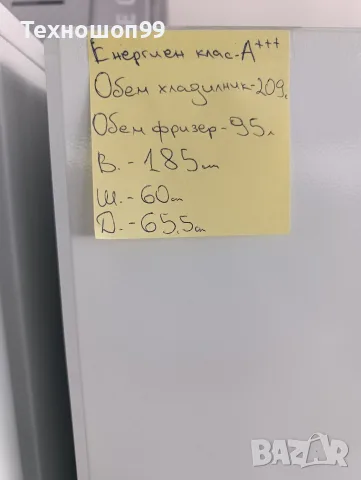 Техношоп99
Енергиен клас-A+++
Обем хладилник-209л
Обем фризер-95л
В.-185cm
Ш.-60cm
D.-65,5cm
BAZAR